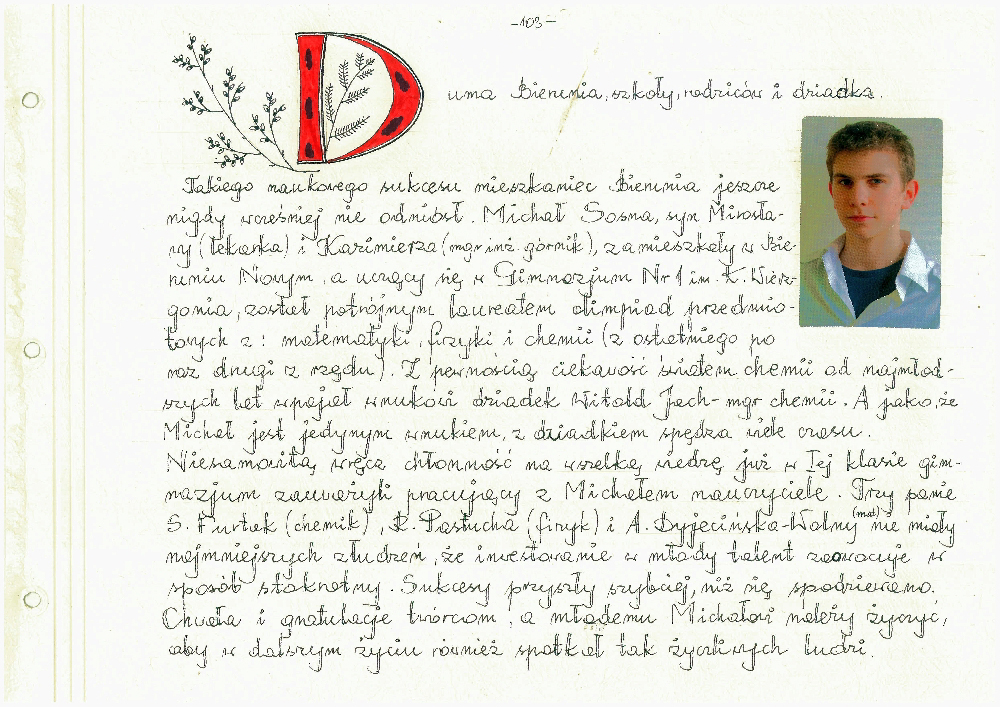 -103-
Duma Bierunia, szkoły, rodziców i dziadka.
Takiego naukowego sukcesu mieszkaniec Bierunia jeszcze
nigdy wcześniej nie odniósł. Michał Sosna, syn Mirosła-
wy (lekarka) i Kazimierza (mgr inż. górnik), zamieszkały w Bie-
runiu Nowym, a uczący się w Gimnazjum Nr 1 im. K. Wierz-
gonia, został potrójnym laureatem olimpiad przedmio-
towych z: matematyki, fizyki i chemii (z ostatniego po
raz drugi z rzędu). Z pewnością ciekawość światem chemii od najmłod-
szych lat wpajał wnukowi dziadek Witold Jech - mgr chemii. A jako, że
Michał jest jedynym wnukiem, z dziadkiem spędza wiele czasu.
Niesamowitą wręcz chłonność na wszelką wiedzę już w Iej klasie gim-
nazjum zauważyli pracujący z Michałem nauczyciele. Trzy panie
S. Furtak (chemik), R. Pastucha (fizyk) i A. Dyjecińska-Wolny (mat) nie miały
najmniejszych złudzeń, że inwestowanie w młody talent zaowocuje w
sposób stokrotny. Sukcesy przyszły szybciej, niż się spodziewano.
Chwała i gratulacje twórcom, a młodemu Michałowi należy życzyć,
aby w dalszym życiu również spotkał tak życzliwych ludzi.